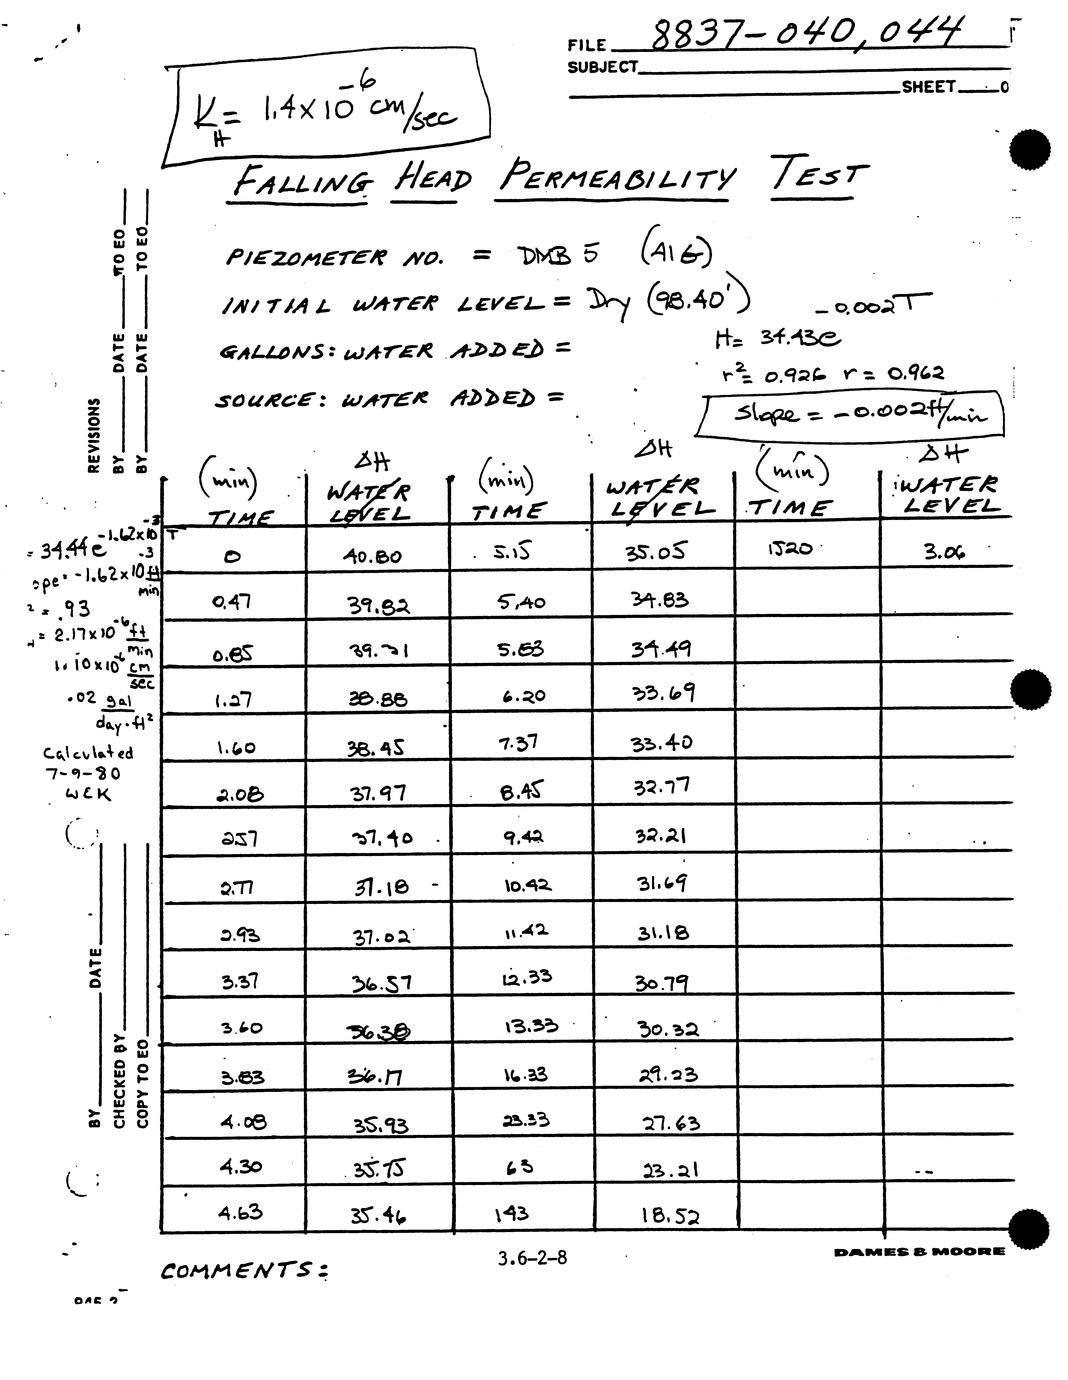 FILE 8837-040, 044
SUBJECT
SHEET
K_H = 1.4 x 10^-6 cm/sec
FALLING HEAD PERMEABILITY TEST
PIEZOMETER NO. = DMB 5 (A16)
INITIAL WATER LEVEL = Dry (98.40')
GALLONS: WATER ADDED =
SOURCE: WATER ADDED =
H = 34.43e^-0.002T
r² = 0.926 r = 0.962
Slope = -0.002 ft/min
REVISIONS
BY DATE TO EO
BY DATE TO EO
(min) TIME ΔH WATER LEVEL (min) TIME ΔH WATER LEVEL (min) TIME ΔH WATER LEVEL
0 40.80 5.15 35.05 1520 3.06
0.47 39.82 5.40 34.83
0.85 5.83 34.49
1.27 38.88 6.20 33.69
1.60 38.45 7.37 33.40
2.08 37.97 8.45 32.77
2.57 37.40 9.42 32.21
2.77 37.18 10.42 31.69
2.93 37.02 11.42 31.18
3.37 36.57 12.33 30.79
3.60 36.38 13.33 30.32
3.83 36.17 16.33 29.23
4.08 35.93 23.33 27.63
4.30 35.75 63 23.21
4.63 35.46 143 18.52
= 34.44e^-1.62x10^-3 T
ope = -1.62x10^-3 ft/min
² = .93
= 2.17x10^-6 ft/min
1.10x10^-6 cm/sec
.02 gal/day·ft²
Calculated
7-9-80
WEK
BY DATE
CHECKED BY
COPY TO EO
3.6-2-8
DAMES & MOORE
COMMENTS: